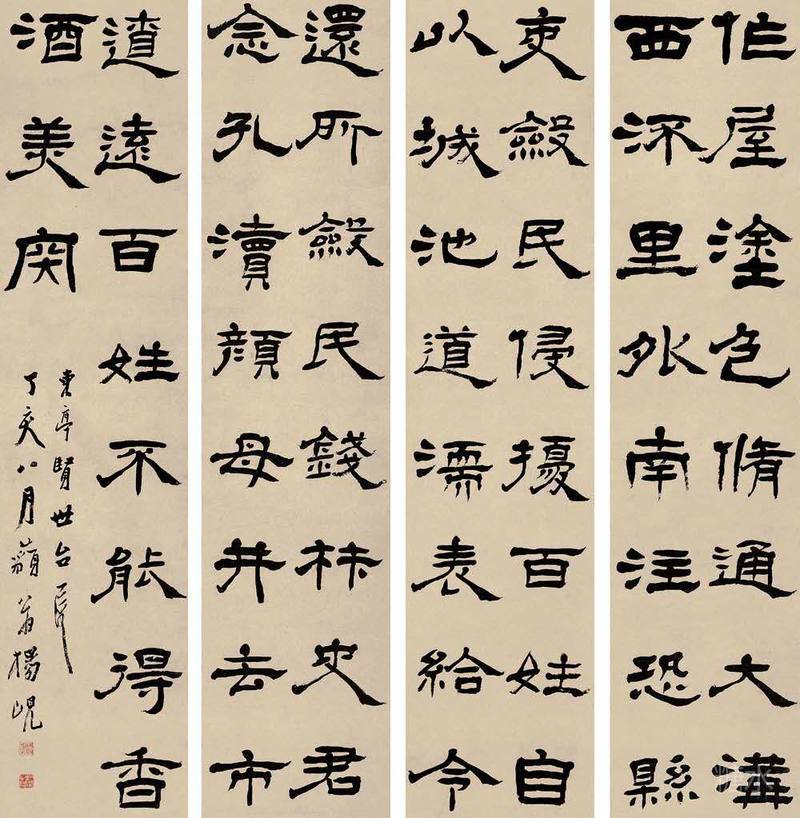 作屋塗色脩通大溝
西流里外南注恐縣
吏斂民侵擾百姓自
以城池道濡麦給令
還所斂民錢材史君
念孔瀆顏母井去市
遼遠百姓不能得香
酒美肉
東亭賢世台
丁亥八月藐翁楊峴